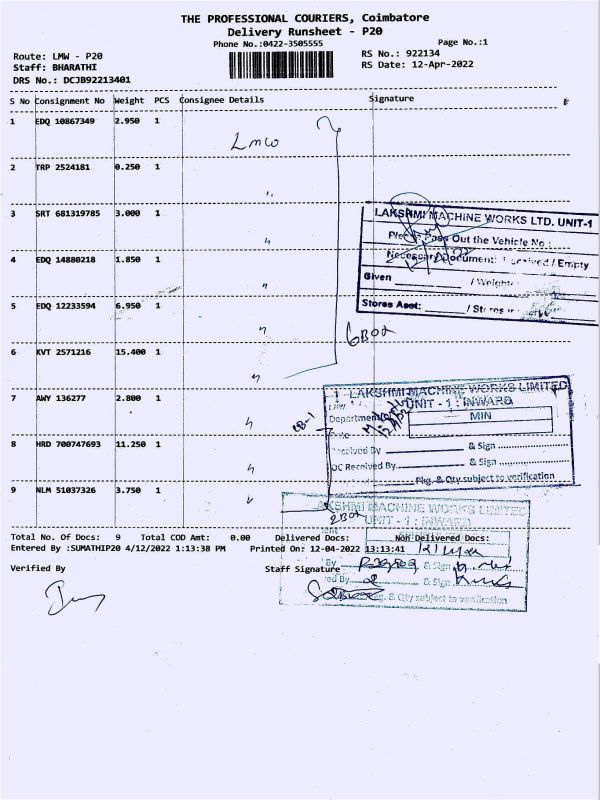 THE PROFESSIONAL COURIERS, Coimbatore
Delivery Runsheet - P20
Phone No.:0422-3505555
Page No.:1
Route: LMW - P20
RS No.: 922134
Staff: BHARATHI
RS Date: 12-Apr-2022
DRS No.: DCJB92213401
S No Consignment No Weight PCS Consignee Details Signature
1 EDQ 10867349 2.950 1
LMW
2 TRP 2524181 0.250 1 "
3 SRT 681319785 3.000 1 "
LAKSHMI MACHINE WORKS LTD. UNIT-1
Please Pass Out the Vehicle No :
4 EDQ 14880218 1.850 1 "
/ Empty
Given / Weight
5 EDQ 12233594 6.950 1 "
Stores Asst: / Stores
6 Box
6 KVT 2571216 15.400 1 "
LAKSHMI MACHINE WORKS LIMITED
UNIT - 1 : INWARD
7 AWY 136277 2.800 1 "
Department MIN
8 HRD 700747693 11.250 1 "
& Sign
DC Received By & Sign
Pkg. & Qty subject to verification
9 NLM 51037326 3.750 1
2 Box
LAKSHMI MACHINE WORKS LIMITED
UNIT - 1 : INWARD
Total No. Of Docs: 9 Total COD Amt: 0.00 Delivered Docs: Non Delivered Docs:
Entered By :SUMATHIP20 4/12/2022 1:13:38 PM Printed On: 12-04-2022 13:13:41
Verified By Staff Signature
By & Sign
& Sign
& Qty subject to verification